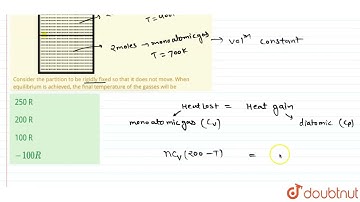 T = 400K
2 moles → monoatomic gas → vol^m constant
T = 700K
Consider the partition to be rigidly fixed so that it does not move. When
equilibrium is achieved, the final temperature of the gasses will be
250 R
200 R
100 R
−100R
Heat lost = Heat gain
monoatomic gas (Cv) diatomic (Cp)
nCv (200 − T) =
doubtnut